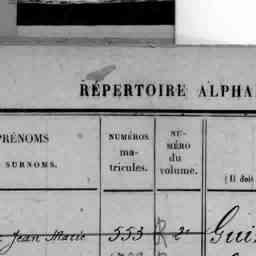 RÉPERTOIRE ALPHA
PRÉNOMS
SURNOMS.
NUMÉROS
ma-
tricules.
NU-
MÉRO
du
volume.
(Il doit
Jean Marie 553 R 2e Gui